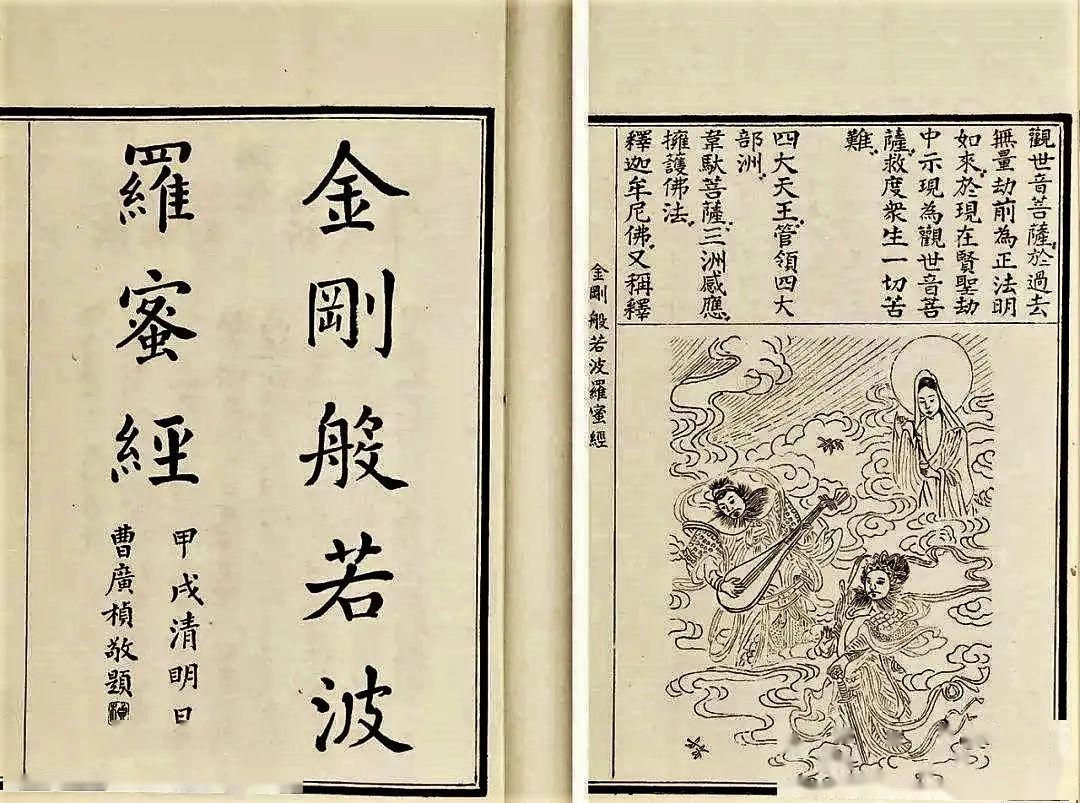 金剛般若波
羅蜜經
甲戌清明日
曹廣楨敬題
觀世音菩薩於過去
無量劫前為正法明
如來於現在賢聖劫
中示現為觀世音菩
薩救度衆生一切苦
難
四大天王管領四大
部洲
韋馱菩薩三洲感應
擁護佛法
釋迦牟尼佛又稱釋
金剛般若波羅蜜經